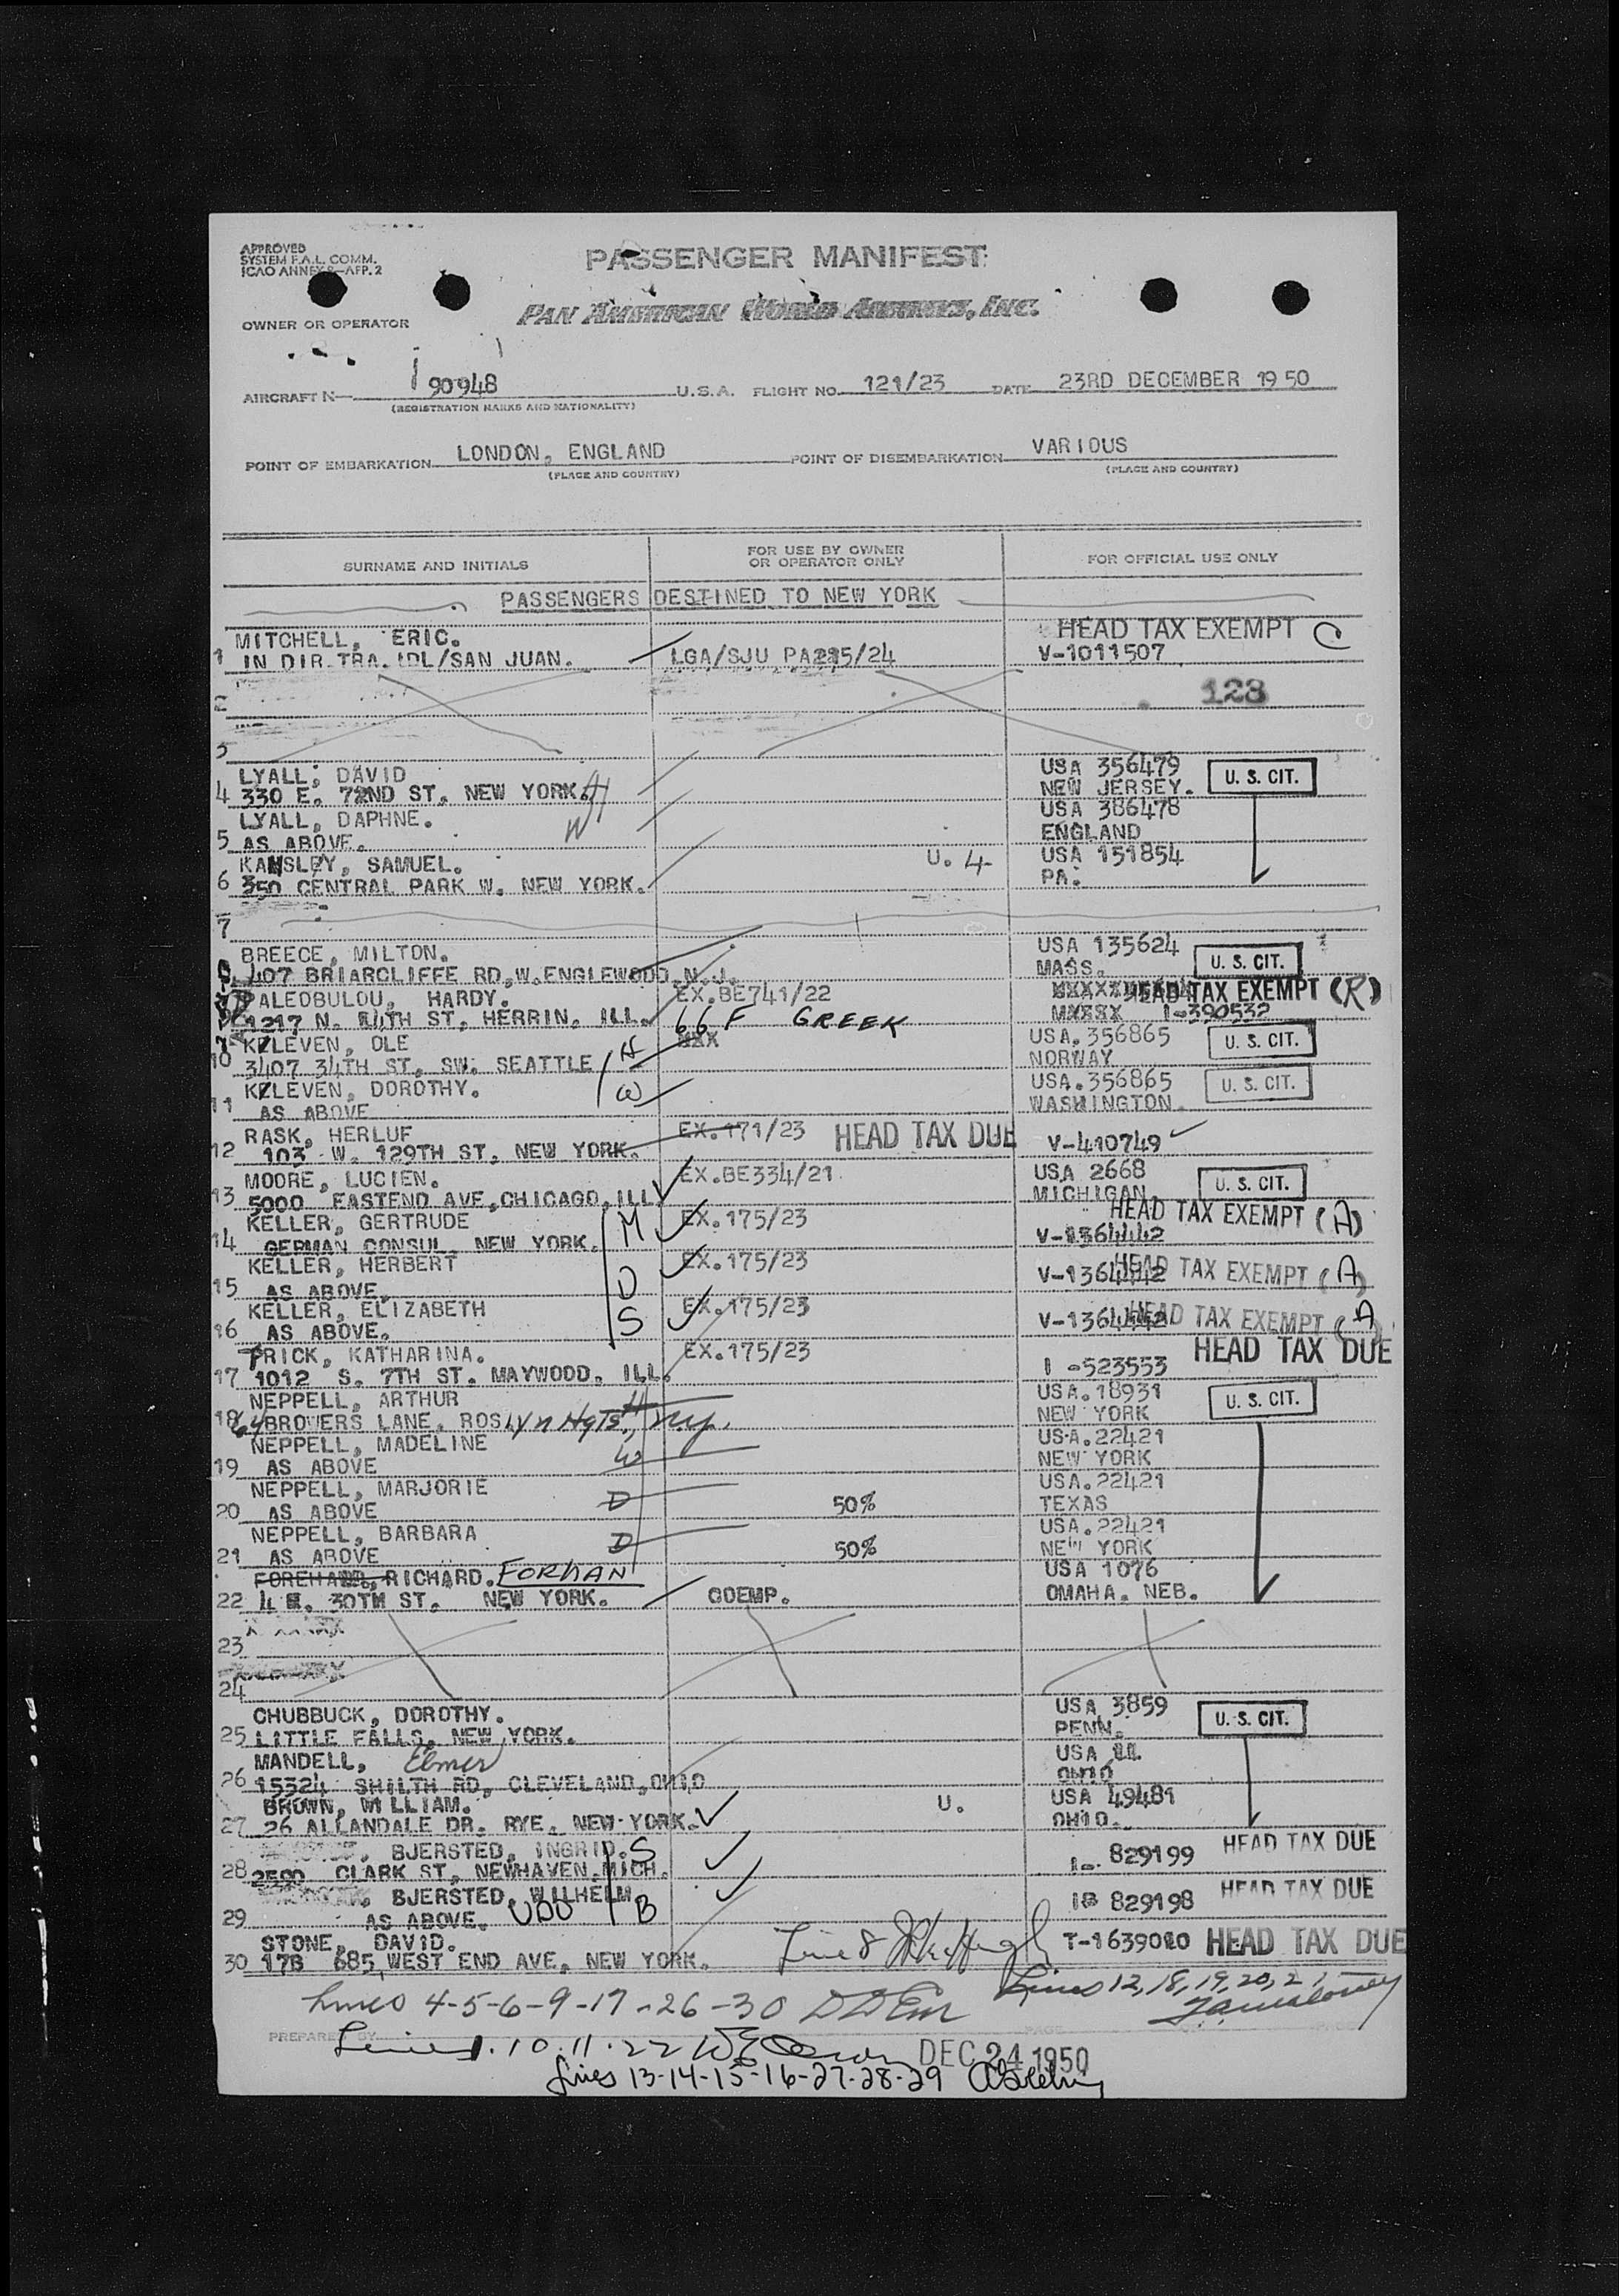 APPROVED
SYSTEM F.A.L. COMM.
ICAO ANNEX 9—AFP. 2
PASSENGER MANIFEST
PAN AMERICAN WORLD AIRWAYS, INC.
OWNER OR OPERATOR
AIRCRAFT N— 90948 U.S.A. FLIGHT NO. 121/23 DATE 23RD DECEMBER 19 50
(REGISTRATION MARKS AND NATIONALITY)
POINT OF EMBARKATION LONDON, ENGLAND POINT OF DISEMBARKATION VARIOUS
(PLACE AND COUNTRY) (PLACE AND COUNTRY)
SURNAME AND INITIALS FOR USE BY OWNER OR OPERATOR ONLY FOR OFFICIAL USE ONLY
PASSENGERS DESTINED TO NEW YORK
MITCHELL, ERIC. HEAD TAX EXEMPT C
1 IN DIR.TRA. IDL/SAN JUAN. LGA/SJU PA215/24 V-1011507
2 128
3
LYALL, DAVID USA 356479 U. S. CIT.
4 330 E. 72ND ST. NEW YORK. H NEW JERSEY.
LYALL, DAPHNE. W USA 386478
5 AS ABOVE. ENGLAND
KAHSLEY, SAMUEL. U. 4 USA 151854
6 350 CENTRAL PARK W. NEW YORK. PA.
7
BREECE, MILTON. USA 135624 U. S. CIT.
407 BRIARCLIFFE RD,W.ENGLEWOOD,N.J. MASS.
PALEOBULOU, HARDY. EX.BE741/22 HEAD TAX EXEMPT (R)
1217 N. 14TH ST, HERRIN, ILL. 66 F GREEK I-390532
KLEVEN, OLE H USA.356865 U. S. CIT.
10 3407 34TH ST, SW. SEATTLE NORWAY
KLEVEN, DOROTHY. W USA.356865 U. S. CIT.
11 AS ABOVE WASHINGTON.
RASK, HERLUF EX.171/23 HEAD TAX DUE V-410749
12 103 W. 129TH ST, NEW YORK.
MOORE, LUCIEN. EX.BE334/21 USA 2668 U. S. CIT.
13 5000 EASTEND AVE,CHICAGO,ILL MICHIGAN.
KELLER, GERTRUDE M EX.175/23 HEAD TAX EXEMPT (A)
14 GERMAN CONSUL, NEW YORK. V-1364442
KELLER, HERBERT D EX.175/23 V-1364442 HEAD TAX EXEMPT (A)
15 AS ABOVE.
KELLER, ELIZABETH S EX.175/23 V-1364442 HEAD TAX EXEMPT (A)
16 AS ABOVE.
FRICK, KATHARINA. EX.175/23 I-523553 HEAD TAX DUE
17 1012 S. 7TH ST. MAYWOOD, ILL.
NEPPELL, ARTHUR H USA.18931 U. S. CIT.
18 64 BROWERS LANE, ROSlyn Hgts, N.Y. NEW YORK
NEPPELL, MADELINE W USA.22421
19 AS ABOVE NEW YORK
NEPPELL, MARJORIE D USA.22421
20 AS ABOVE 50% TEXAS
NEPPELL, BARBARA D USA.22421
21 AS ABOVE 50% NEW YORK
RICHARD. FORHAN USA 1076
22 4 E. 30TH ST. NEW YORK. COEMP. OMAHA, NEB.
23
24
CHUBBUCK, DOROTHY. USA 3859 U. S. CIT.
25 LITTLE FALLS, NEW YORK. PENN.
MANDELL, Elmer USA 11
26 15324 SHILTH RD, CLEVELAND,OHIO OHIO
BROWN, WILLIAM. U. USA 49481
27 26 ALLANDALE DR. RYE, NEW YORK. OHIO.
BJERSTED, INGRID. S I- 829199 HEAD TAX DUE
28 2590 CLARK ST, NEWHAVEN.MICH.
BJERSTED, WILHELM UDO B 829198 HEAD TAX DUE
29 AS ABOVE.
STONE, DAVID. Line 8 T-1639010 HEAD TAX DUE
30 17B 685 WEST END AVE, NEW YORK.
Lines 12, 18, 19, 20, 21
Lines 4-5-6-9-17-26-30
PREPARED BY PAGE
Lines 1.10.11.22 DEC 24 1950
Lines 13-14-15-16-27-28-29